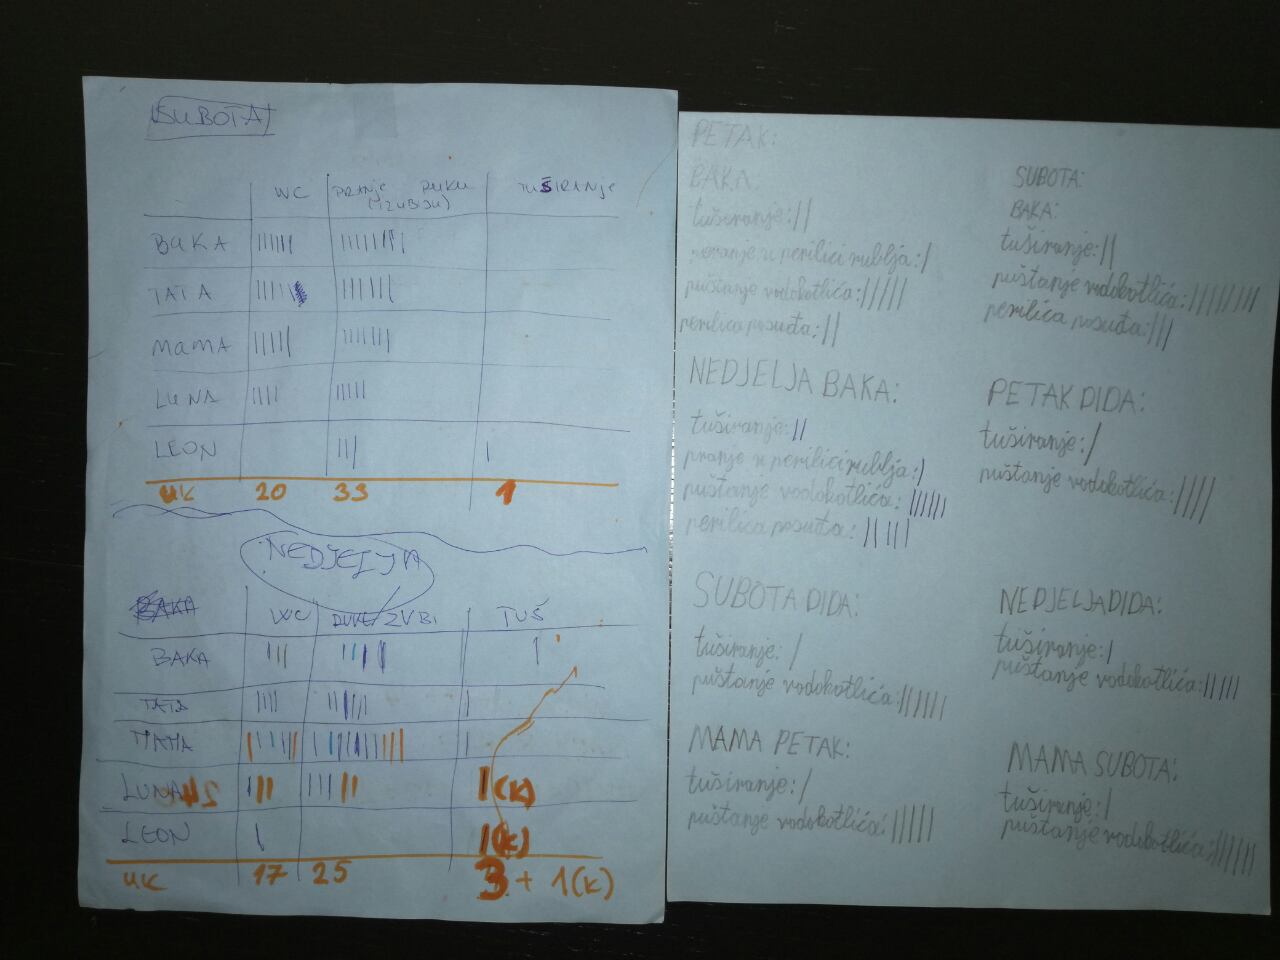 SUBOTA
WC PRANJE RUKU (IZUBIJU) TUŠIRANJE
BAKA |||||| |||||||||
TATA ||||| |||||||
MAMA |||||| |||||||
LUNA |||| |||||
LEON ||| |
UK 20 33 1
NEDJELJA
WC RUKE/ZUBI TUŠ
BAKA ||| ||||| |
TATA |||| |||||| |
MAMA
LUNA ||| |||||| 1(K)
LEON | 1(K)
UK 17 25 3 + 1(K)
PETAK:
BAKA:
tuširanje: ||
pranje u perilici rublja: |
puštanje vodokotlića: |||||
perilica posuđa: ||
SUBOTA:
BAKA:
tuširanje: ||
puštanje vodokotlića: ||||||||
perilica posuđa: |||
NEDJELJA BAKA:
tuširanje: ||
pranje u perilici rublja: |
puštanje vodokotlića: ||||||
perilica posuđa: |||||
PETAK DIDA:
tuširanje: /
puštanje vodokotlića: ||||
SUBOTA DIDA:
tuširanje: /
puštanje vodokotlića: ||||||
NEDJELJA DIDA:
tuširanje: |
puštanje vodokotlića: |||||
MAMA PETAK:
tuširanje: /
puštanje vodokotlića: |||||
MAMA SUBOTA:
tuširanje: |
puštanje vodokotlića: ||||||